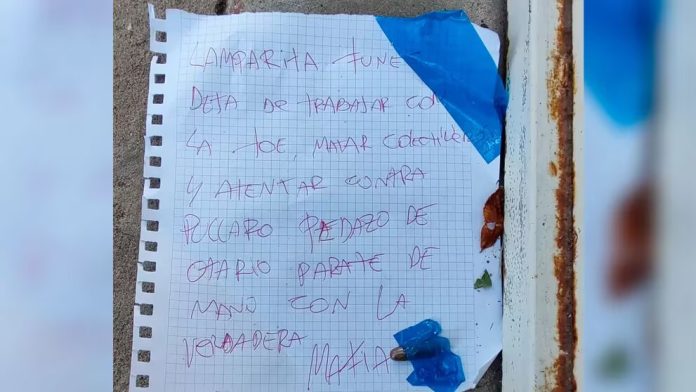 LAMPARITA TUNE
DEJA DE TRABAJAR CON
LA TOE, MATAR COLECTIVEROS
Y ATENTAR CONTRA
PUCCARO PEDAZO DE
OTARIO PARATE DE
MANO CON LA
VERDADERA MAFIA